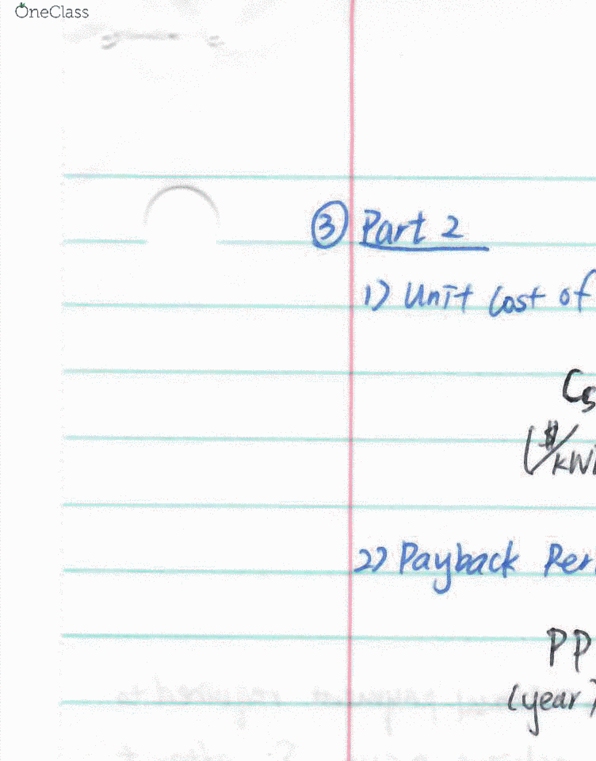 OneClass
③ Part 2
1) Unit Cost of
Cs
($/kW
2) Payback Per
PP
(year